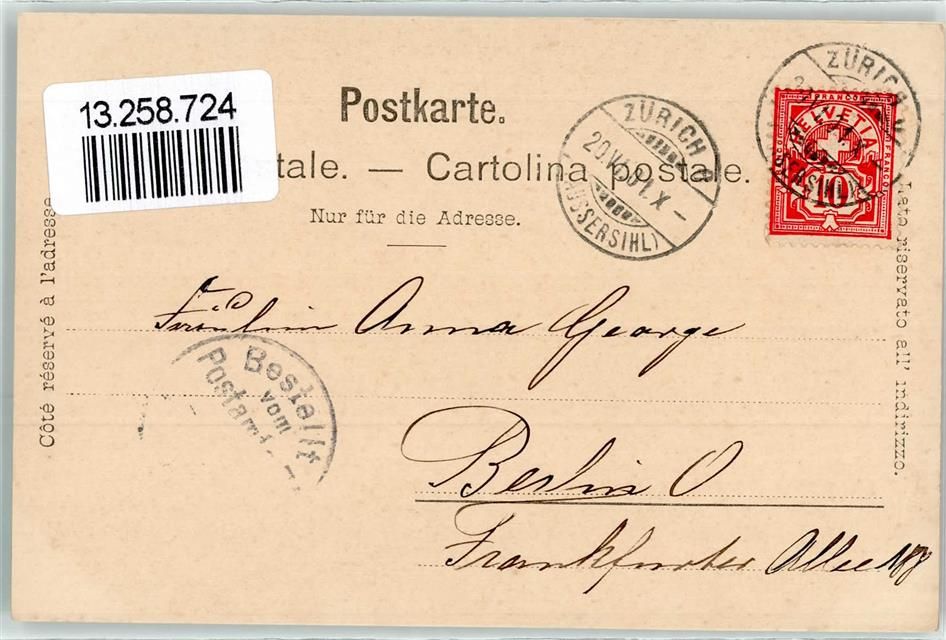 13.258.724
Postkarte.
tale. — Cartolina postale.
Nur für die Adresse.
Côté réservé à l'adresse.
Lato riservato all' indirizzo.
ZÜRICH
20.VI.01.X –
(AUSSERSIHL)
ZÜRICH
FRANCO
HELVETIA
FRANCO
10
Fräulein Anna George
Bestellt
vom
Postamt
Berlin O
Frankfurter Allee 188